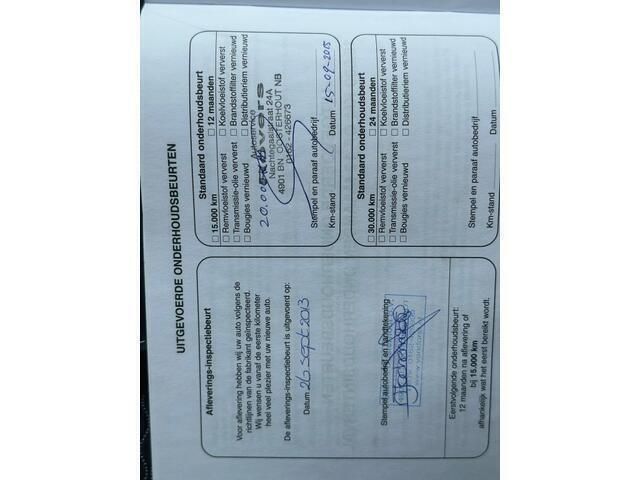 UITGEVOERDE ONDERHOUDSBEURTEN
Afleverings-inspectiebeurt
Voor aflevering hebben wij uw auto volgens de
richtlijnen van de fabrikant geïnspecteerd.
Wij wensen u vanaf de eerste kilometer
heel veel plezier met uw nieuwe auto.
De afleverings-inspectiebeurt is uitgevoerd op:
Datum 26 sept 2013
Stempel autobedrijf en handtekening
Eerstvolgende onderhoudsbeurt:
12 maanden na aflevering of
bij 15.000 km
afhankelijk wat het eerst bereikt wordt.
Standaard onderhoudsbeurt
15.000 km 12 maanden
Remvloeistof ververst Koelvloeistof ververst
Transmissie-olie ververst Brandstoffilter vernieuwd
Bougies vernieuwd Distributieriem vernieuwd
20.000
Autoservice
Nachtegaalstraat 24A
4901 BN OOSTERHOUT NB
0162 - 426673
Stempel en paraaf autobedrijf
Km-stand Datum 15-09-2015
Standaard onderhoudsbeurt
30.000 km 24 maanden
Remvloeistof ververst Koelvloeistof ververst
Transmissie-olie ververst Brandstoffilter vernieuwd
Bougies vernieuwd Distributieriem vernieuwd
Stempel en paraaf autobedrijf
Km-stand Datum